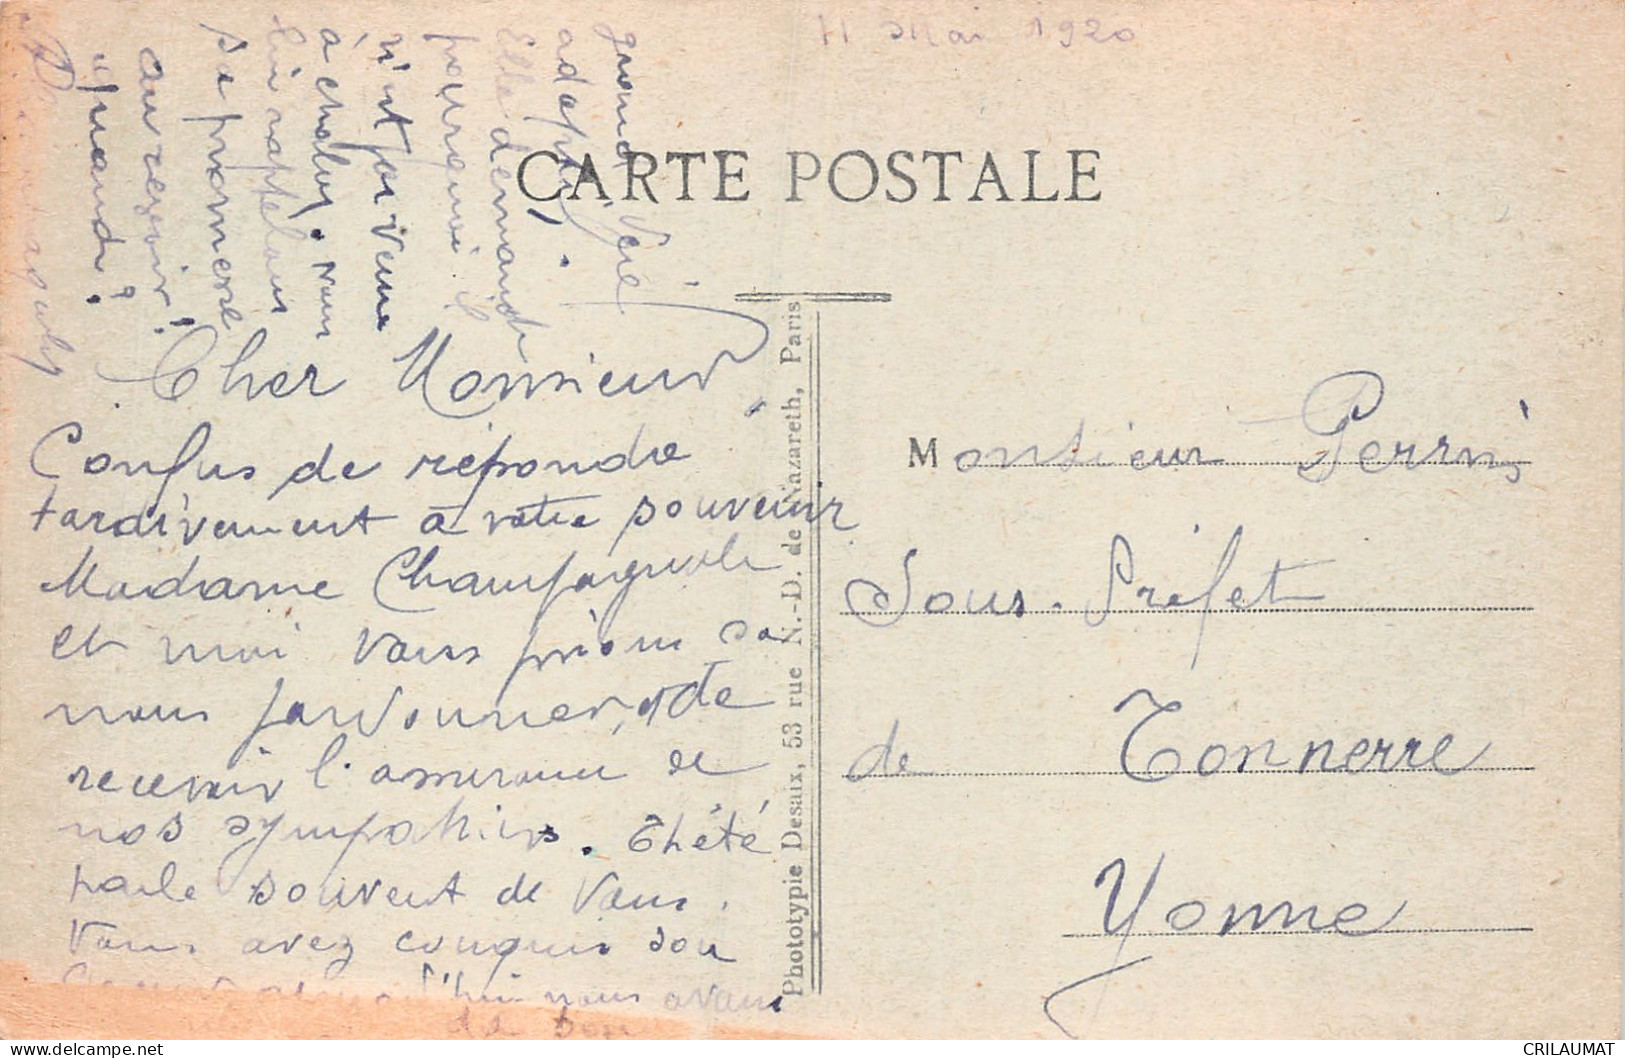 11 Mai 1920
CARTE POSTALE
Cher Monsieur
Confus de répondre
tardivement à votre souvenir
Madame Champagnole
et moi vous prions de
nous pardonner, et de
recevoir l'assurance de
nos sympathies. Thété
parle souvent de vous.
Vous avez conquis son
aujourd'hui nous avons
de bon
grand
adapté.
Elle demande
pourquoi il
n'est pas venu
à nous
lui rappelons
sa promesse
au revoir!
quand?
Phototypie Desaix, 53 rue N.-D. de Nazareth, Paris
Monsieur Perrin
Sous-Préfet
de Tonnerre
Yonne
CRILAUMAT